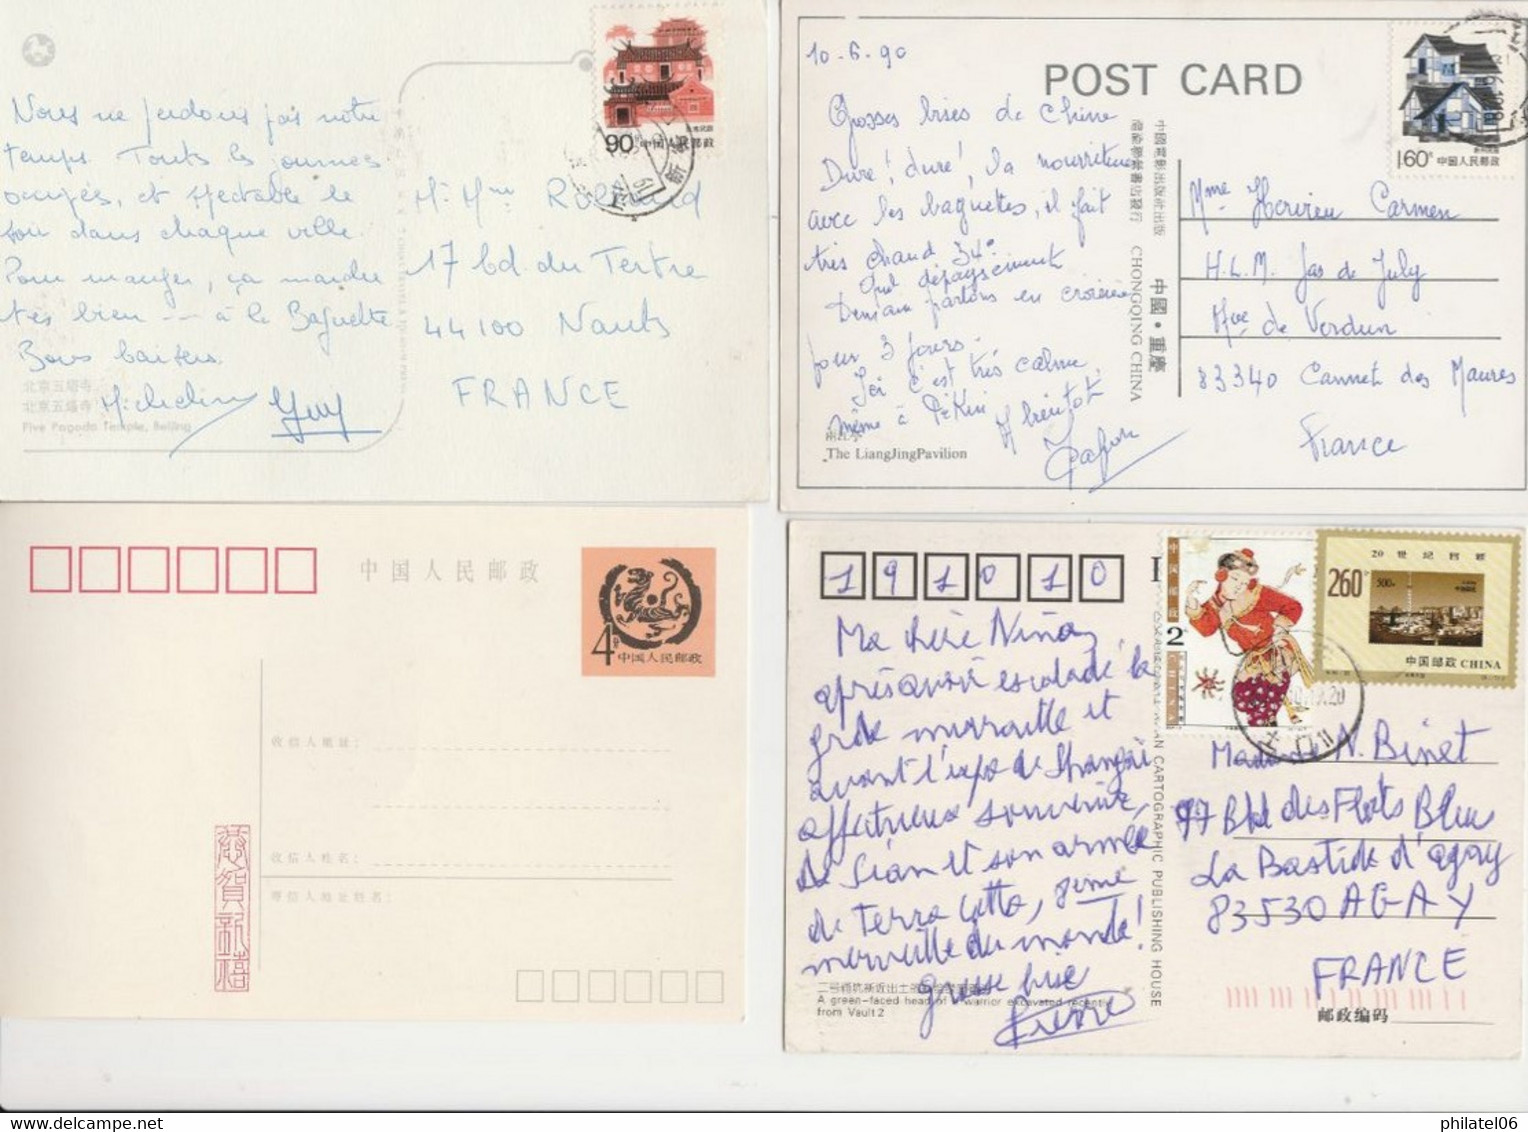 Nous ne perdons pas notre
temps. Toutes les journées
occupées, et spectable le
soir dans chaque ville.
Pour manger, ça marche
très bien --- à la Baguette
Bons baisers.
Guy
北京五塔寺
北京五塔寺
Five Pagoda Temple, Beijing
90
中国人民邮政
Mr Mme Rolland
17 bd. du Tertre
44100 Nantes
FRANCE
10-6-90
POST CARD
Grosses bises de Chine
Dure! dure! la nourriture
avec les baguettes, il fait
très chaud 34°
Quel dépaysement
Demain partons en croisière
pour 3 jours.
Ici c'est très calme,
même à Pékin
A bientôt
The LiangJingPavilion
中國・重慶
CHONGQING CHINA
160
中国人民邮政
Mme Hervieu Carmen
H.L.M. Jas de July
Ave de Verdun
83340 Cannet des Maures
France
中国人民邮政
4
中国人民邮政
收信人地址:
收信人姓名:
寄信人地址姓名:
恭賀新禧
191010
Ma chère Ninon,
après avoir escaladé la
grde murraille et
avant l'expo de Shangaï
affectueux souvenirs,
de Sian et son armée
de terra cotta, 8ème
merveille du monde!
Grosse bise
Pierre
A green-faced head of warrior excavated recently
from Vault 2
CARTOGRAPHIC PUBLISHING HOUSE
中国邮政
2
20世纪回顾
260
中国邮政 CHINA
Madame N. Binet
97 Bld des Flots Bleus
La Bastide d'agay
83530 AGAY
FRANCE
邮政编码
philatel06